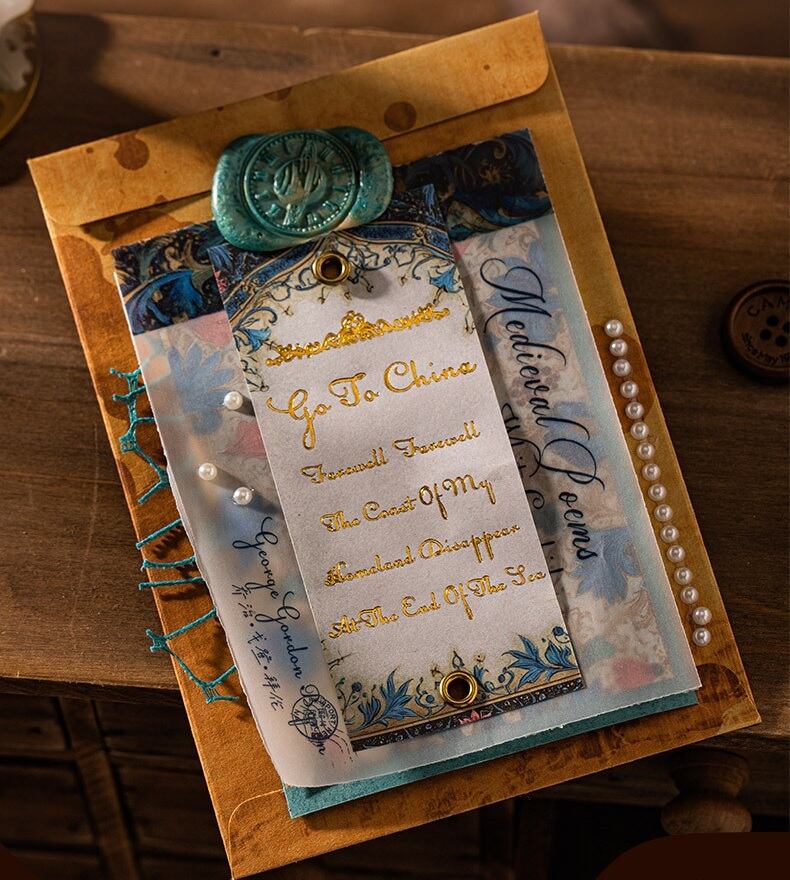 Go To China
Farewell Farewell
The Coast Of My
Homeland Disappear
At The End Of The Sea
Medieval Poems
George Gordon
乔治·戈登·拜伦
CAM